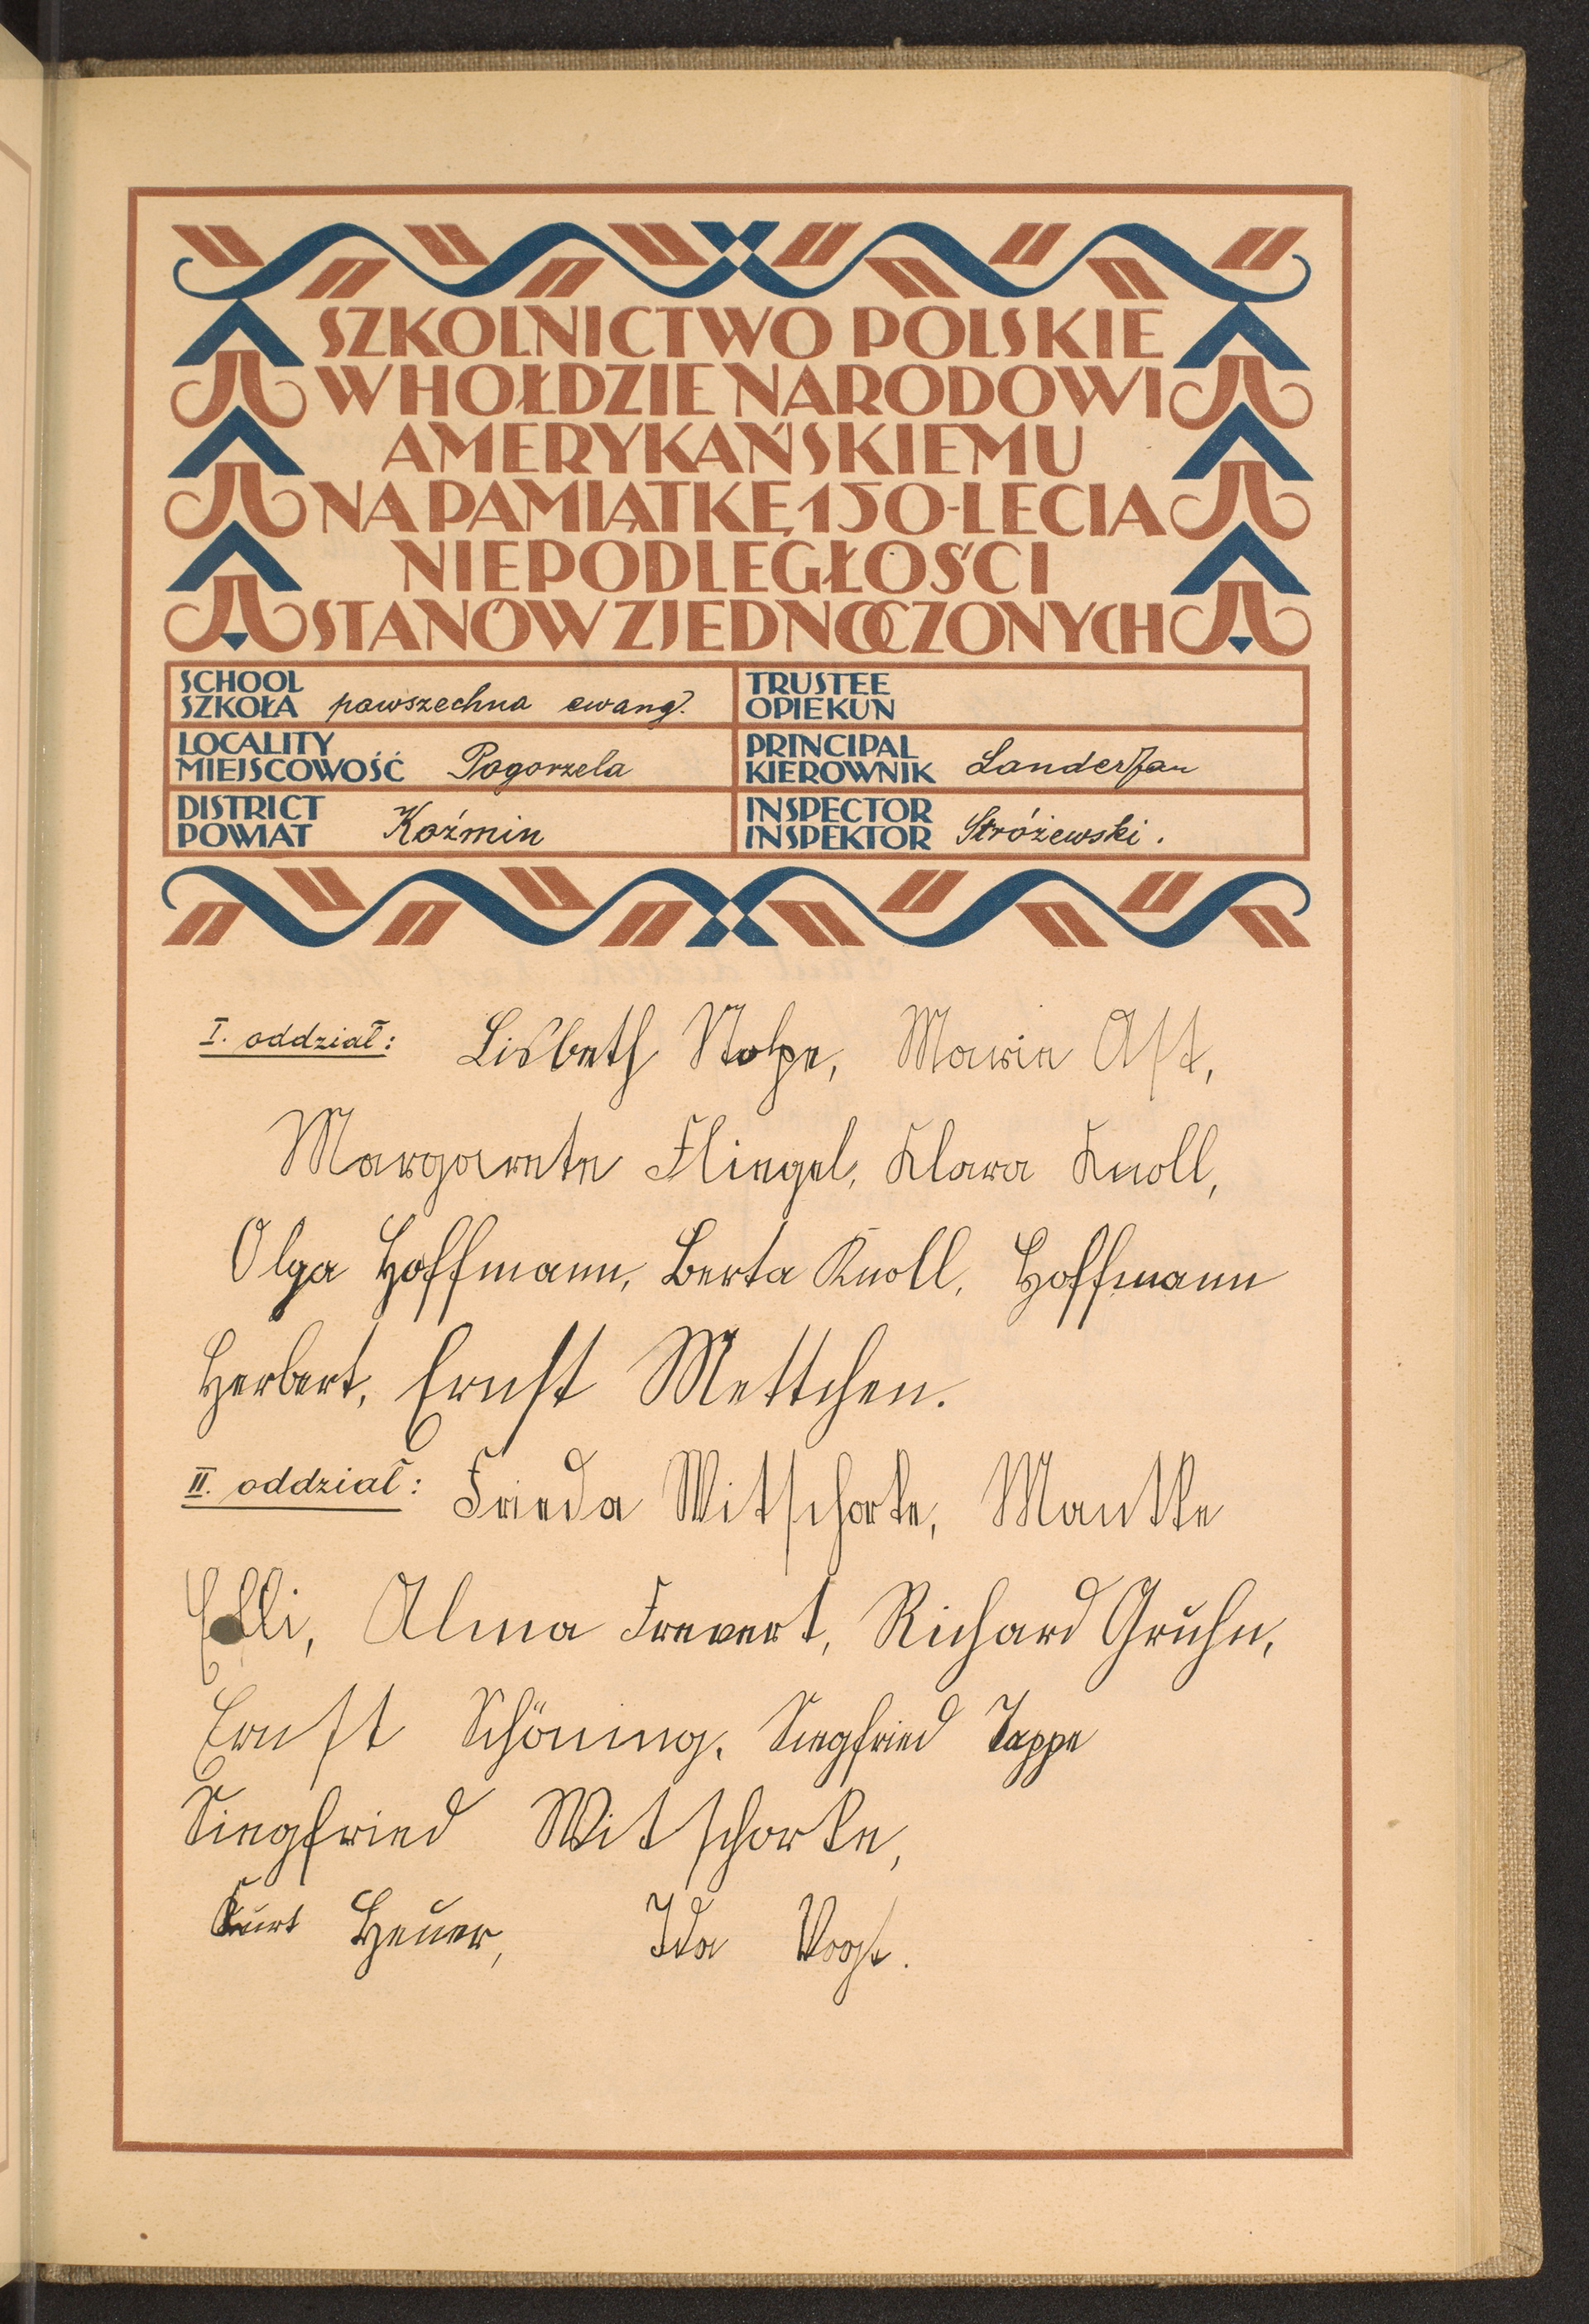 SZKOLNICTWO POLSKIE
W HOŁDZIE NARODOWI
AMERYKAŃSKIEMU
NA PAMIĄTKĘ 150-LECIA
NIEPODLEGŁOŚCI
STANÓW ZJEDNOCZONYCH
SCHOOL
SZKOŁA powszechna ewang.
TRUSTEE
OPIEKUN
LOCALITY
MIEJSCOWOŚĆ Pogorzela
PRINCIPAL
KIEROWNIK Lander Jan
DISTRICT
POWIAT Koźmin
INSPECTOR
INSPEKTOR Stróżewski.
I. oddział: Lisbeth Stolpe, Marie Ast,
Margarete Fliegel, Klara Knoll,
Olga Hoffmann, Berta Knoll, Hoffmann
Herbert, Ernst Mettchen.
II. oddział: Frieda Witschorke, Manthe
Elli, Alma Frevert, Richard Gruhn,
Ernst Schöning, Siegfried Tappe
Siegfried Witschorke,
Kurt Heuer, Ida Vogt.